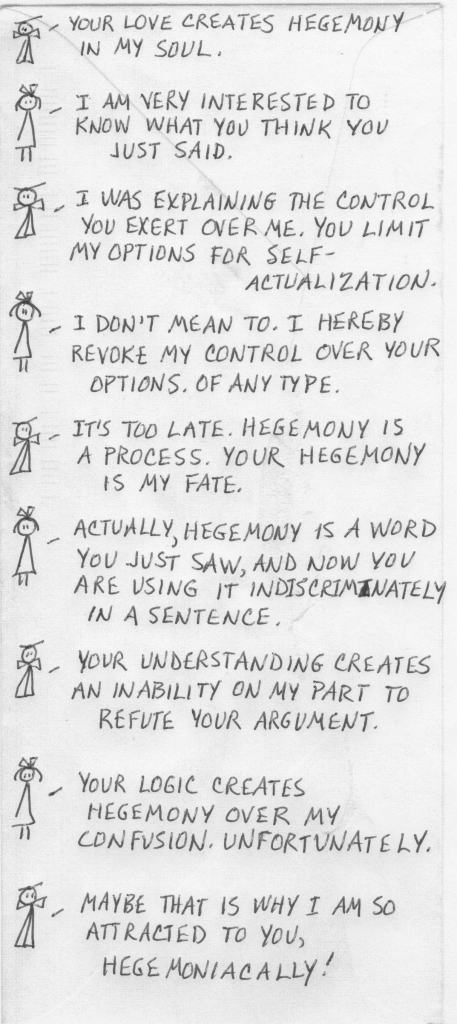 YOUR LOVE CREATES HEGEMONY
IN MY SOUL.
I AM VERY INTERESTED TO
KNOW WHAT YOU THINK YOU
JUST SAID.
I WAS EXPLAINING THE CONTROL
YOU EXERT OVER ME. YOU LIMIT
MY OPTIONS FOR SELF-
ACTUALIZATION.
I DON'T MEAN TO. I HEREBY
REVOKE MY CONTROL OVER YOUR
OPTIONS. OF ANY TYPE.
IT'S TOO LATE. HEGEMONY IS
A PROCESS. YOUR HEGEMONY
IS MY FATE.
ACTUALLY, HEGEMONY IS A WORD
YOU JUST SAW, AND NOW YOU
ARE USING IT INDISCRIMINATELY
IN A SENTENCE.
YOUR UNDERSTANDING CREATES
AN INABILITY ON MY PART TO
REFUTE YOUR ARGUMENT.
YOUR LOGIC CREATES
HEGEMONY OVER MY
CONFUSION. UNFORTUNATELY.
MAYBE THAT IS WHY I AM SO
ATTRACTED TO YOU,
HEGEMONIACALLY!